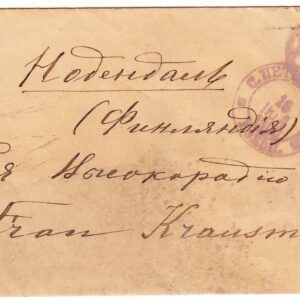 Нодендаль
(Финляндія)
Ея Высокородію
Frau Krausm
С.ПЕТ
16